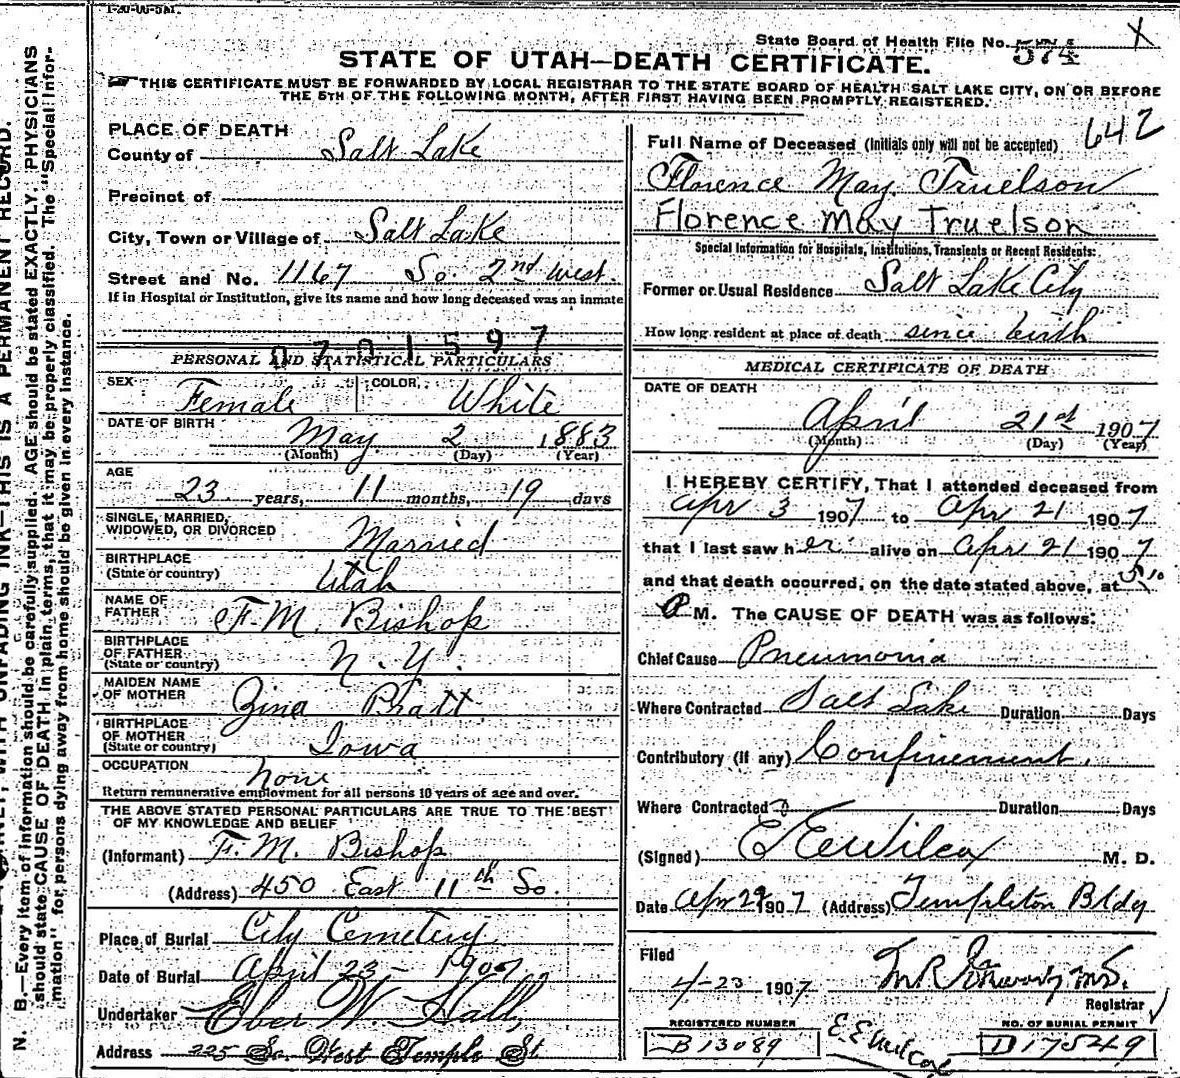 State Board of Health File No. 574 X
STATE OF UTAH—DEATH CERTIFICATE.
THIS CERTIFICATE MUST BE FORWARDED BY LOCAL REGISTRAR TO THE STATE BOARD OF HEALTH SALT LAKE CITY, ON OR BEFORE
THE 5TH OF THE FOLLOWING MONTH, AFTER FIRST HAVING BEEN PROMPTLY REGISTERED.
642
PLACE OF DEATH
County of Salt Lake
Precinct of
City, Town or Village of Salt Lake
Street and No. 1167 So. 2nd West.
If in Hospital or Institution, give its name and how long deceased was an inmate
0701597
PERSONAL AND STATISTICAL PARTICULARS
SEX Female COLOR White
DATE OF BIRTH May 2 1883
(Month) (Day) (Year)
AGE
23 years, 11 months, 19 days
SINGLE, MARRIED,
WIDOWED, OR DIVORCED Married
BIRTHPLACE
(State or country) Utah
NAME OF
FATHER F. M. Bishop
BIRTHPLACE
OF FATHER
(State or country) N. Y.
MAIDEN NAME
OF MOTHER Zina Pratt
BIRTHPLACE
OF MOTHER
(State or country) Iowa
OCCUPATION None
Return remunerative employment for all persons 10 years of age and over.
THE ABOVE STATED PERSONAL PARTICULARS ARE TRUE TO THE BEST
OF MY KNOWLEDGE AND BELIEF
(Informant) F. M. Bishop
(Address) 450 East 11th So.
Place of Burial City Cemetery
Date of Burial April 23 - 1907
Undertaker Eber W. Hall,
Address 225 So. West Temple St
Full Name of Deceased (Initials only will not be accepted)
Florence May Truelson
Florence May Truelson
Special Information for Hospitals, Institutions, Transients or Recent Residents:
Former or Usual Residence Salt Lake City
How long resident at place of death since birth
MEDICAL CERTIFICATE OF DEATH
DATE OF DEATH
April 21st 1907
(Month) (Day) (Year)
I HEREBY CERTIFY, That I attended deceased from
Apr 3 1907 to Apr 21 1907
that I last saw her alive on Apr 21 1907
and that death occurred, on the date stated above, at 5 10
P M. The CAUSE OF DEATH was as follows:
Chief Cause Pneumonia
Where Contracted Salt Lake Duration Days
Contributory (if any) Confinement.
Where Contracted Duration Days
(Signed) E E Wilcox M. D.
Date Apr 1907 (Address) Templeton Bldg
Filed
4-23 1907
Registrar
REGISTERED NUMBER
B 13089
E. E. Wilcox
NO. OF BURIAL PERMIT
D 17549
THIS IS A PERMANENT RECORD.
N. B.—Every item of information should be carefully supplied. AGE should be stated EXACTLY. PHYSICIANS
should state CAUSE OF DEATH in plain terms, that it may be properly classified. The "Special Infor-
mation" for persons dying away from home should be given in every instance.